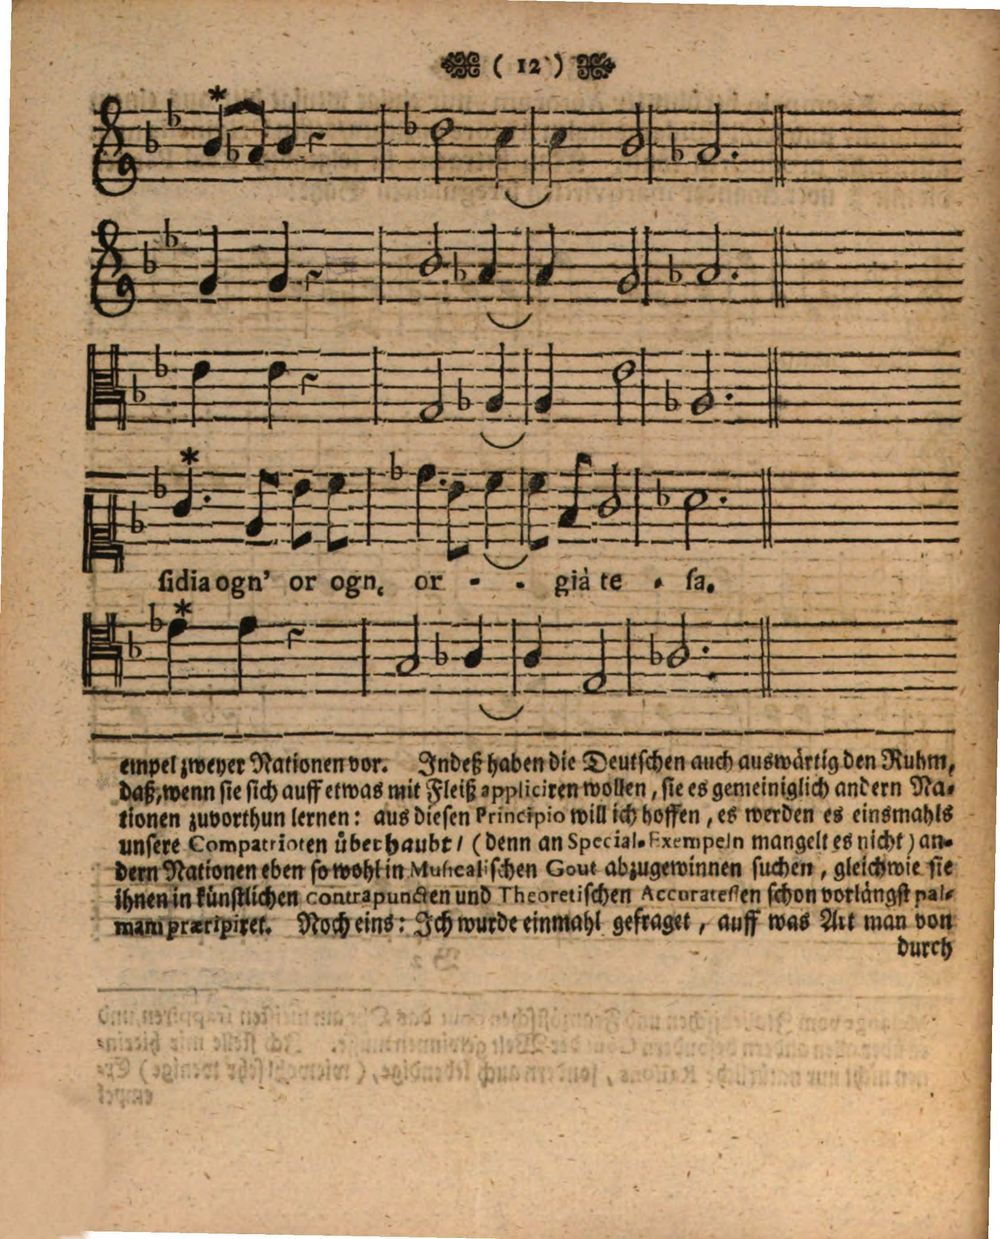 ( 12 )
sidia ogn' or ogn, or - - già te - sa.
empel zweyer Nationen vor. Indeß haben die Deutschen auch auswärtig den Ruhm,
daß, wenn sie sich auff etwas mit Fleiß appliciren wollen, sie es gemeiniglich andern Na-
tionen zuvorthun lernen: aus diesen Principio will ich hoffen, es werden es einsmahls
unsere Compatrioten überhaubt/ (denn an Special-Exempeln mangelt es nicht) an-
dern Nationen eben so wohl in Musicalischen Gout abzugewinnen suchen, gleichwie sie
ihnen in künstlichen contrapuncten und Theoretischen Accuratessen schon vorlängst pal-
mam præripiret. Noch eins: Ich wurde einmahl gefraget, auff was Art man von
durch